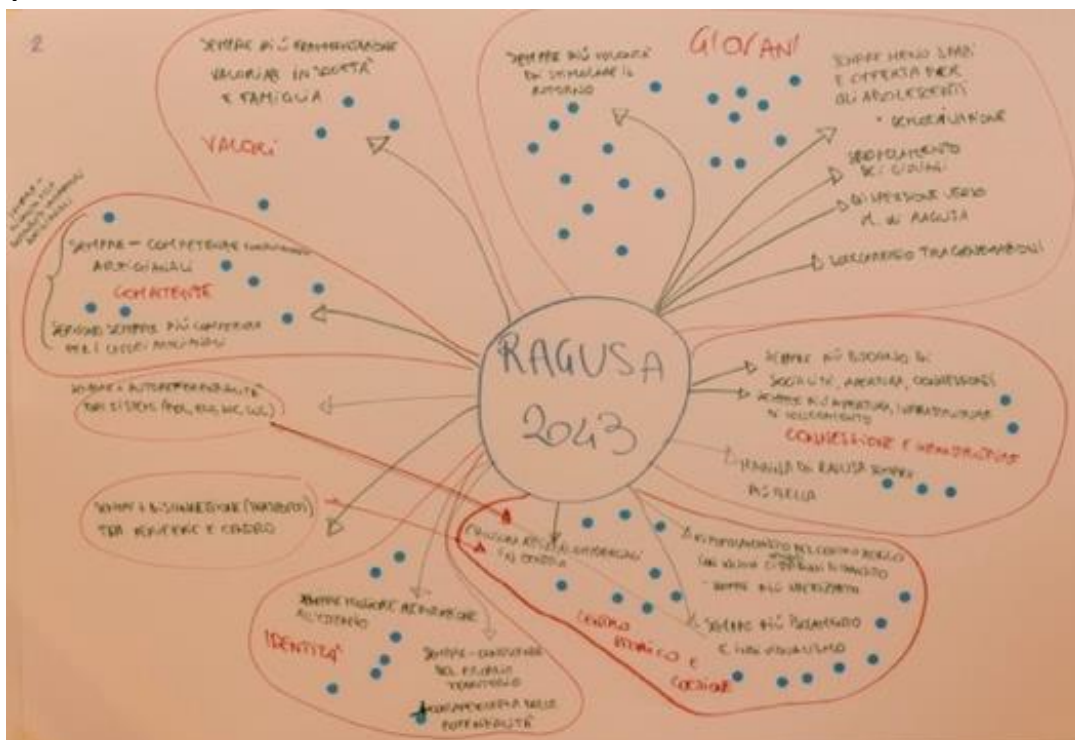 2
SEMPRE PIÙ FRAMMENTAZIONE
VALORIALE IN SOCIETÀ
E FAMIGLIA
VALORI
SEMPRE PIÙ VOLONTÀ
DI STIMOLARE IL
RITORNO
GIOVANI
SEMPRE MENO SPAZI
E OFFERTA PER
GLI ADOLESCENTI
SPOPOLAMENTO
DEI GIOVANI
DISPERSIONE VERSO
M. DI RAGUSA
TRA GENERAZIONI
SEMPRE - COMPETENZE
ARTIGIANALI
COMPETENZE
SERVONO SEMPRE PIÙ COMPETENZE
PER I LAVORI ARTIGIANALI
SEMPRE + AUTOREFERENZIALITÀ
DEI SISTEMI
SEMPRE + DISCONNESSIONE (TRASPORTI)
TRA PERIFERIE E CENTRO
RAGUSA
2043
SEMPRE PIÙ BISOGNO DI
SOCIALITÀ, APERTURA, CONNESSIONI
SEMPRE PIÙ APERTURA, INFRASTRUTTURE
DI COLLEGAMENTO
CONNESSIONE E INFRASTRUTTURE
MARINA DI RAGUSA SEMPRE
PIÙ BELLA
IN CENTRO
RIPOPOLAMENTO DEL CENTRO STORICO
CON NUOVI CITTADINI
SEMPRE PIÙ
SEMPRE PIÙ ISOLAMENTO
E INDIVIDUALISMO
CENTRO
STORICO E
COESIONE
SEMPRE MAGGIORE
ALL'ESTERNO
IDENTITÀ
SEMPRE - CONOSCENZA
DEL PROPRIO
TERRITORIO
CONSAPEVOLEZZA DELLE
POTENZIALITÀ